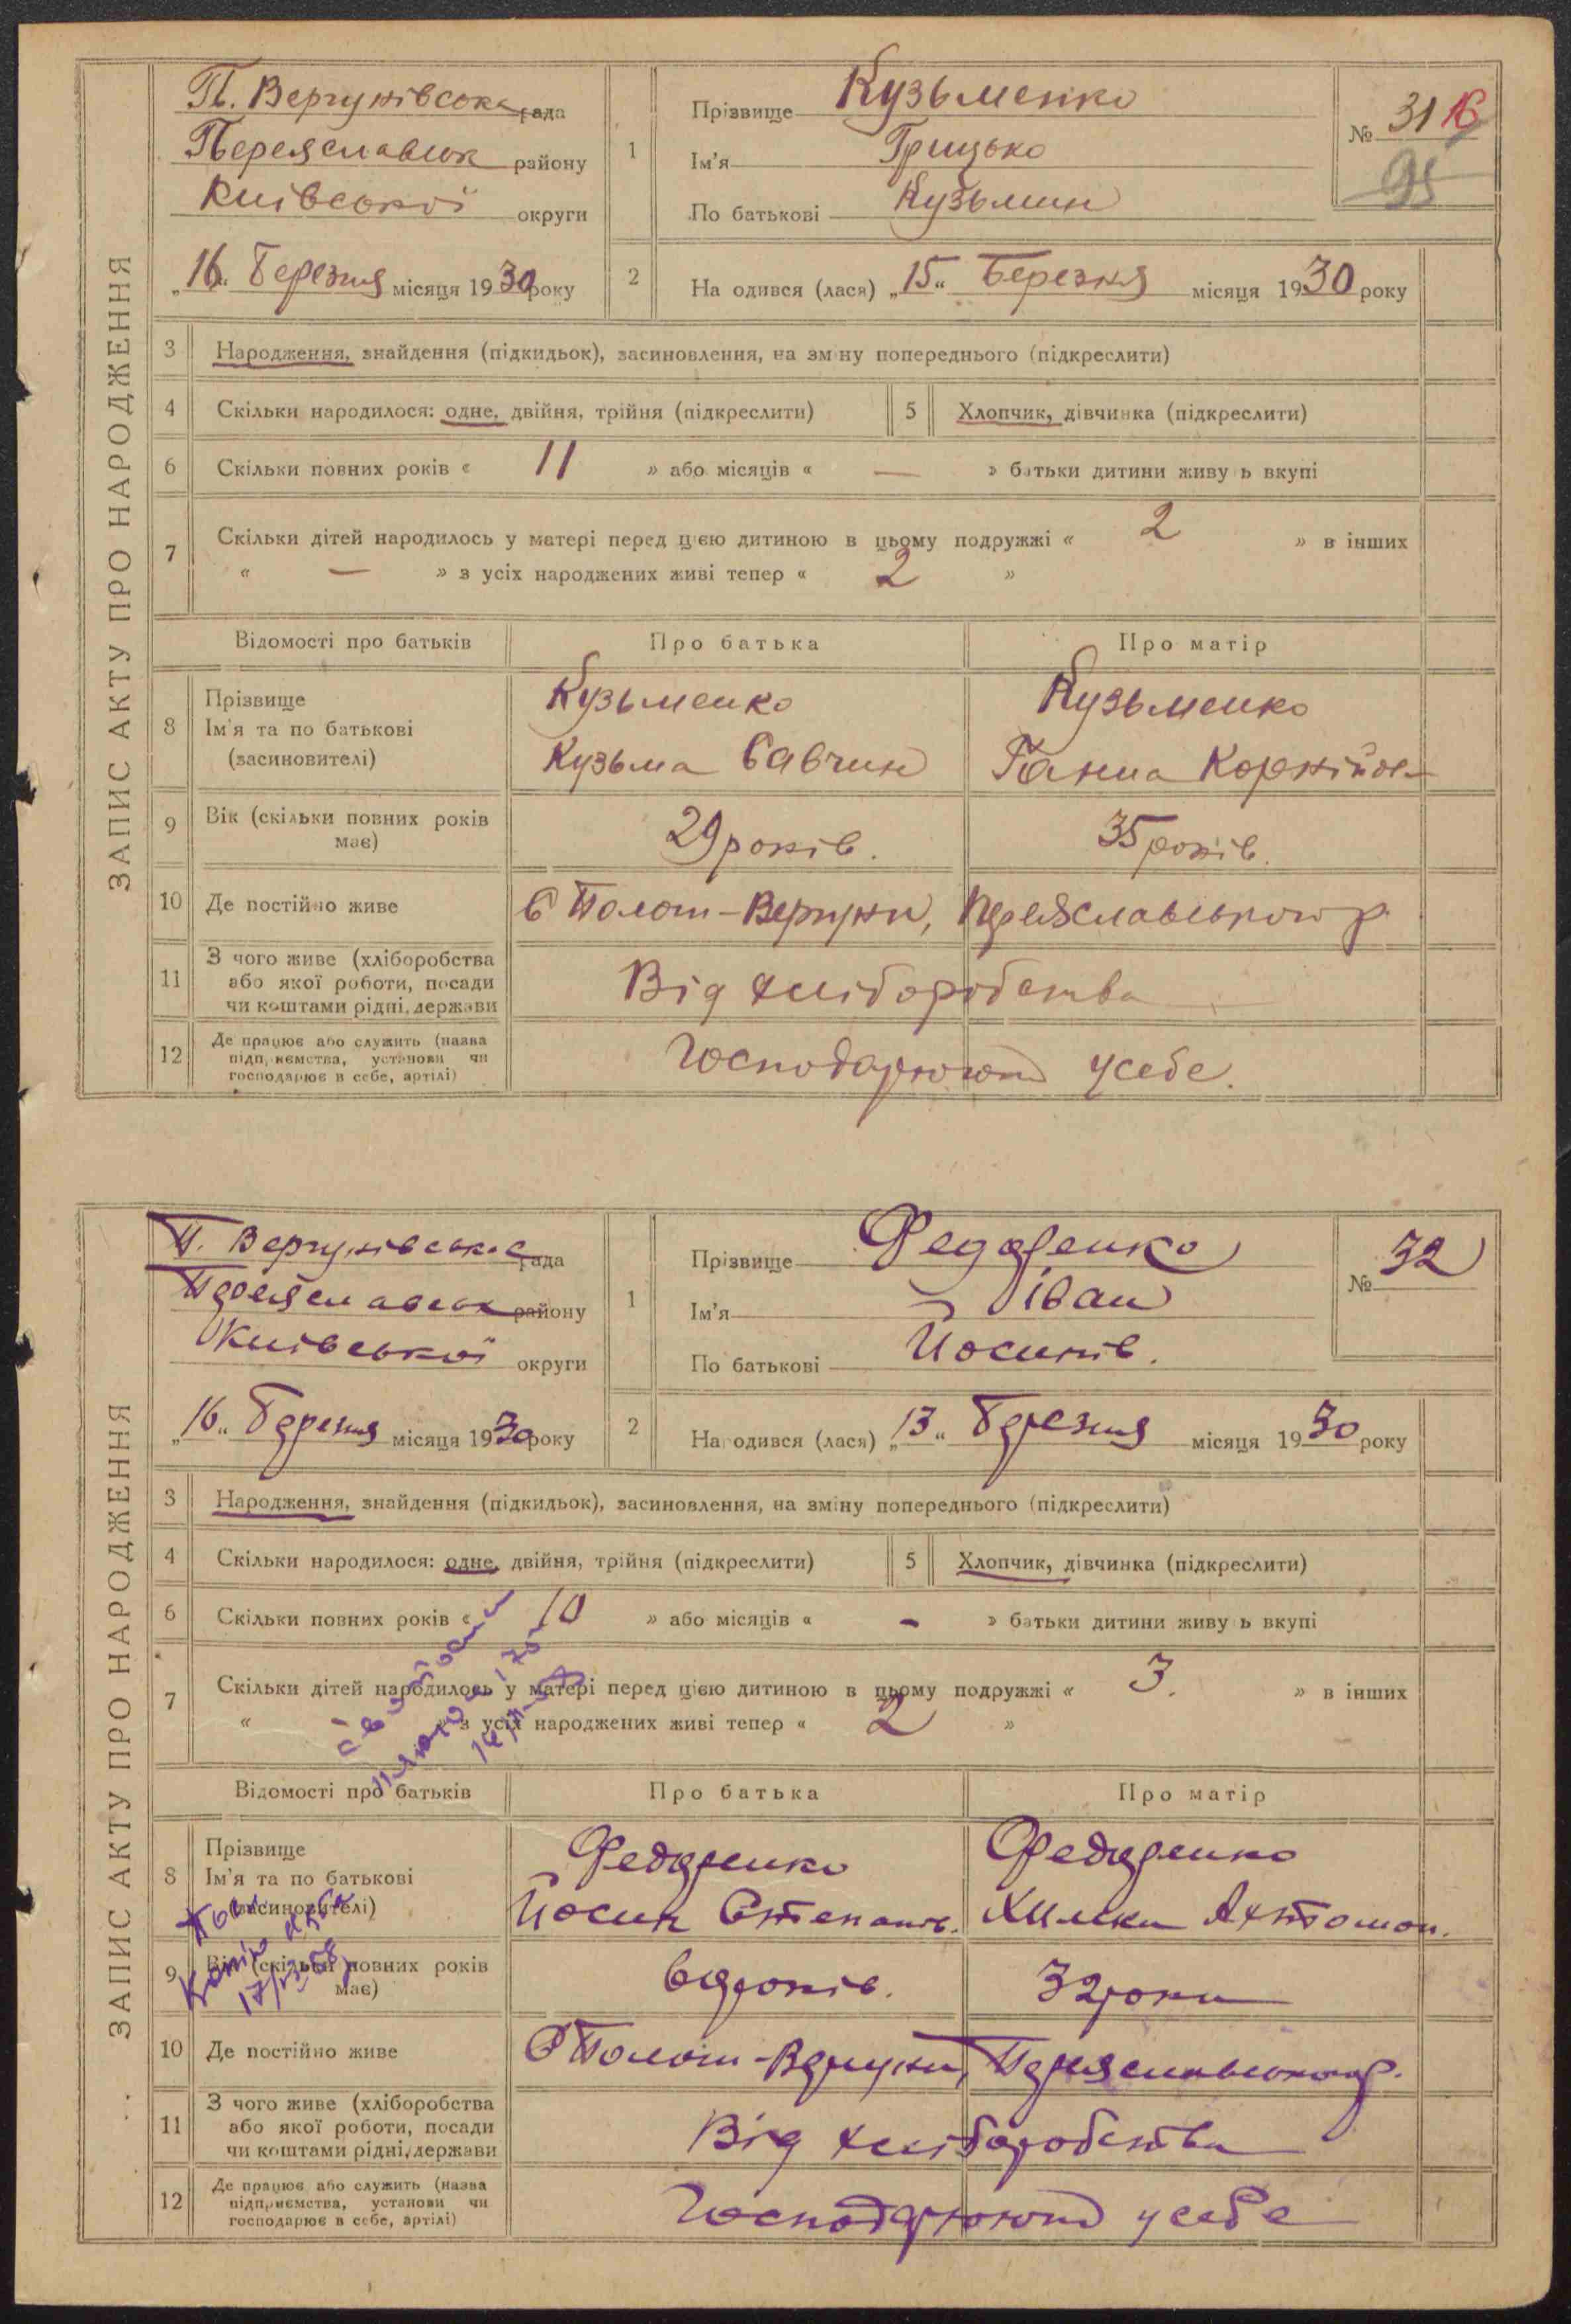 ЗАПИС АКТУ ПРО НАРОДЖЕННЯ
П. Вергунівська рада
Переяславськ району
Київської округи
„16“ Березня місяця 1930 року
1
Прізвище Кузьменко
Ім'я Грицько
По батькові Кузьмин
№ 31 16
95
2
На одився (лася) „15“ Березня місяця 1930 року
3 Народження, знайдення (підкидьок), засиновлення, на зміну попереднього (підкреслити)
4 Скільки народилося: одне, двійня, трійня (підкреслити) 5 Хлопчик, дівчинка (підкреслити)
6 Скільки повних років « 11 » або місяців « — » батьки дитини живу ь вкупі
7 Скільки дітей народилось у матері перед цією дитиною в цьому подружжі « 2 » в інших
« — » з усіх народжених живі тепер « 2 »
Відомості про батьків Про батька Про матір
8 Прізвище Кузьменко Кузьменко
Ім'я та по батькові
(засиновителі) Кузьма Савчин Ганна Корнійов
9 Вік (скільки повних років
має) 29 років. 35 років.
10 Де постійно живе С Полот-Вергуни, Переяславського р.
11 З чого живе (хліборобства
або якої роботи, посади Від хліборобства
чи коштами рідні, держави
12 Де працює або служить (назва
підприємства, установи чи Господарюють усебе.
господарює в себе, артілі)
ЗАПИС АКТУ ПРО НАРОДЖЕННЯ
П. Вергунівська рада
Переяславськ району
Київської округи
„16“ Березня місяця 1930 року
1
Прізвище Федоренко
Ім'я Іван
По батькові Йосипів.
№ 32
2
На одився (лася) „13“ Березня місяця 1930 року
3 Народження, знайдення (підкидьок), засиновлення, на зміну попереднього (підкреслити)
4 Скільки народилося: одне, двійня, трійня (підкреслити) 5 Хлопчик, дівчинка (підкреслити)
6 Скільки повних років « 10 » або місяців « - » батьки дитини живу ь вкупі
7 Скільки дітей народилось у матері перед цією дитиною в цьому подружжі « 3. » в інших
« » з усіх народжених живі тепер « 2 »
Відомості про батьків Про батька Про матір
8 Прізвище Федоренко Федоренко
Ім'я та по батькові
(засиновителі) Йосип Степанів. Химка Антонов.
9 Вік (скільки повних років
має) років. 32 роки
10 Де постійно живе С Полот-Вергуни, Переяславського р.
11 З чого живе (хліборобства
або якої роботи, посади Від хліборобства
чи коштами рідні, держави
12 Де працює або служить (назва
підприємства, установи чи Господарюють усебе
господарює в себе, артілі)